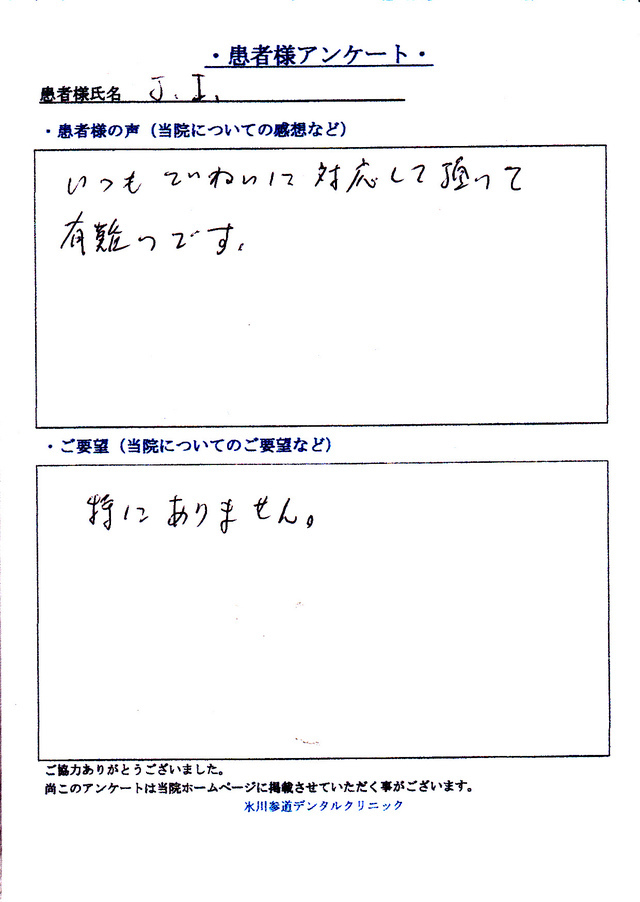 ・患者様アンケート・
患者様氏名 J. I.
・患者様の声（当院についての感想など）
いつもていねいに対応して頂いて
有難いです。
・ご要望（当院についてのご要望など）
特にありません。
ご協力ありがとうございました。
尚このアンケートは当院ホームページに掲載させていただく事がございます。
氷川参道デンタルクリニック